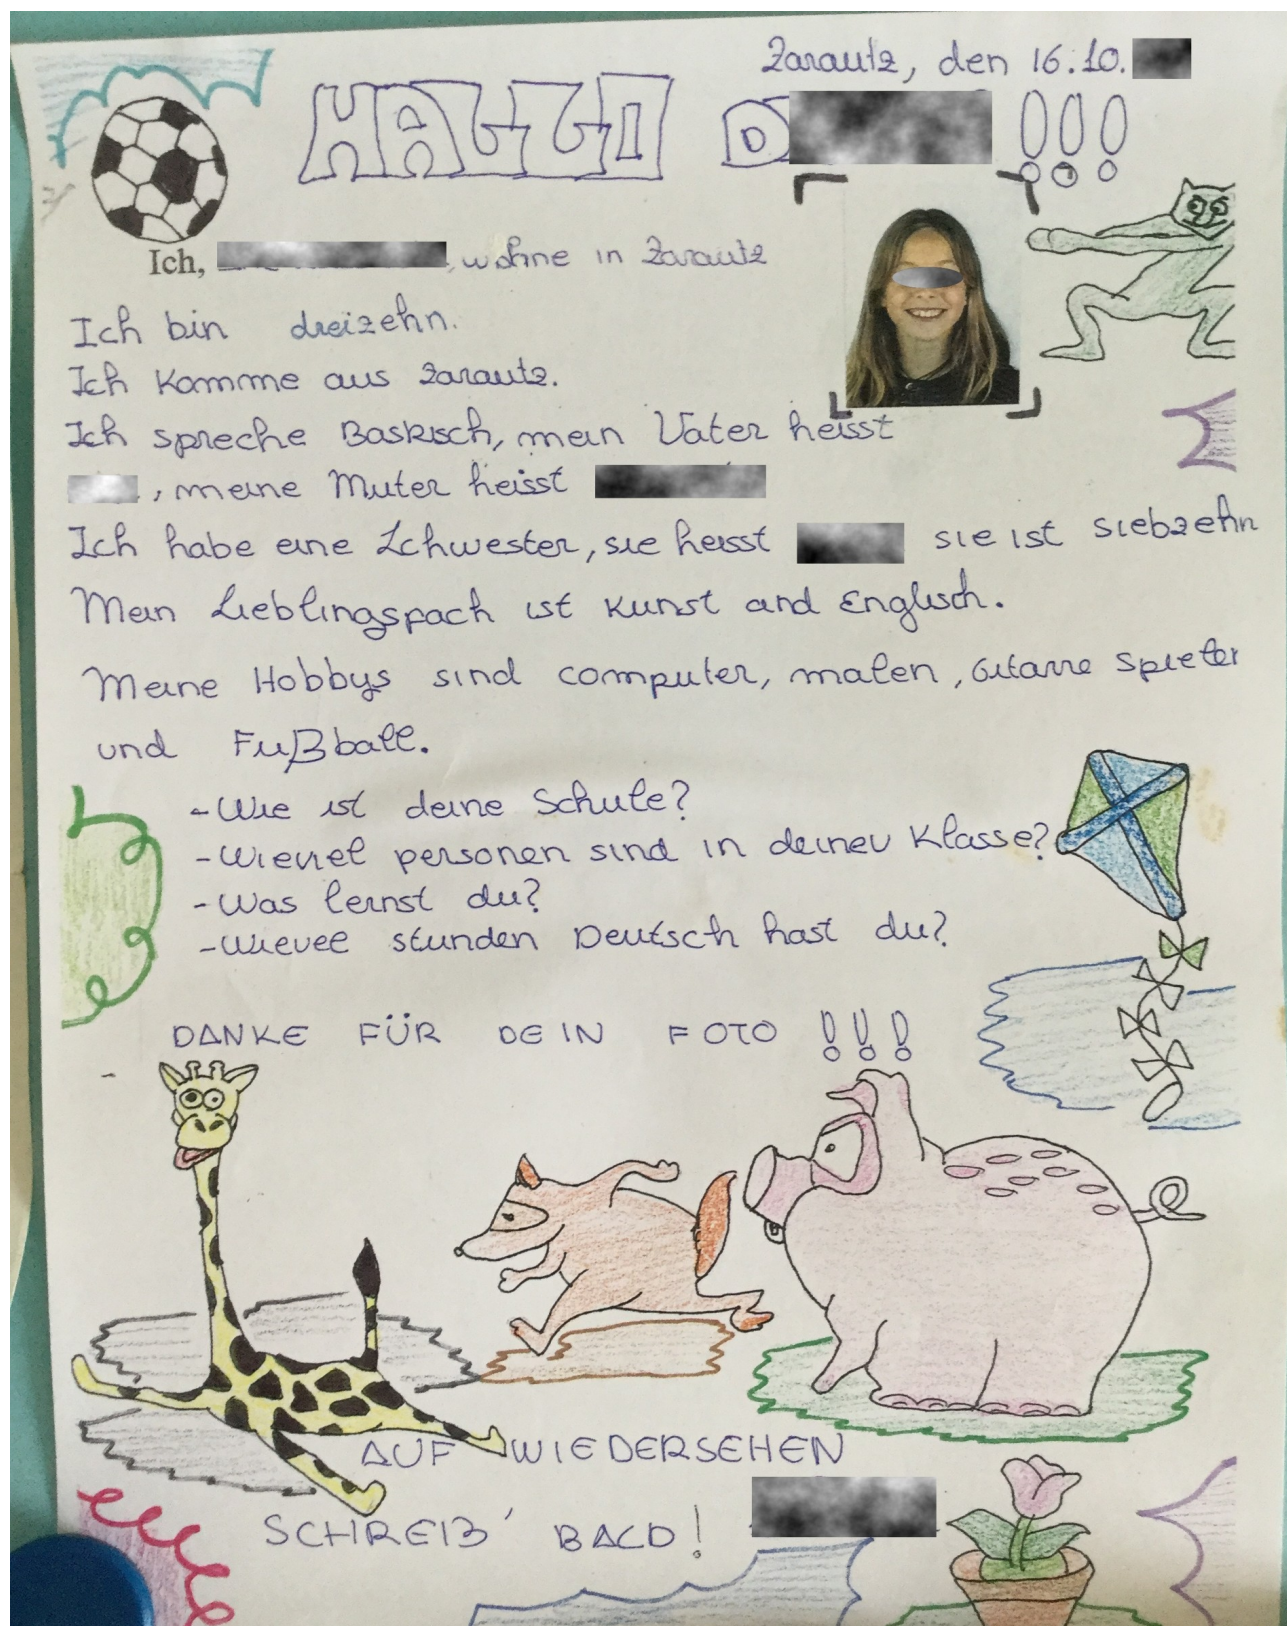 Zarautz, den 16.10.
HALLO D !!!
Ich, , wohne in Zarautz
Ich bin dreizehn.
Ich Komme aus Zarautz.
Ich spreche Baskisch, mein Vater heisst
, meine Muter heisst
Ich habe eine Schwester, sie heisst sie ist siebzehn
Mein Lieblingspach ist Kunst and Englisch.
Meine Hobbys sind computer, malen, Gitarre Spieler
und Fußball.
- Wie ist deine Schule?
- Wieviel personen sind in deiner Klasse?
- Was lernst du?
- Wievel stunden Deutsch hast du?
DANKE FÜR DEIN FOTO !!!
AUF WIEDERSEHEN
SCHREIB' BALD!